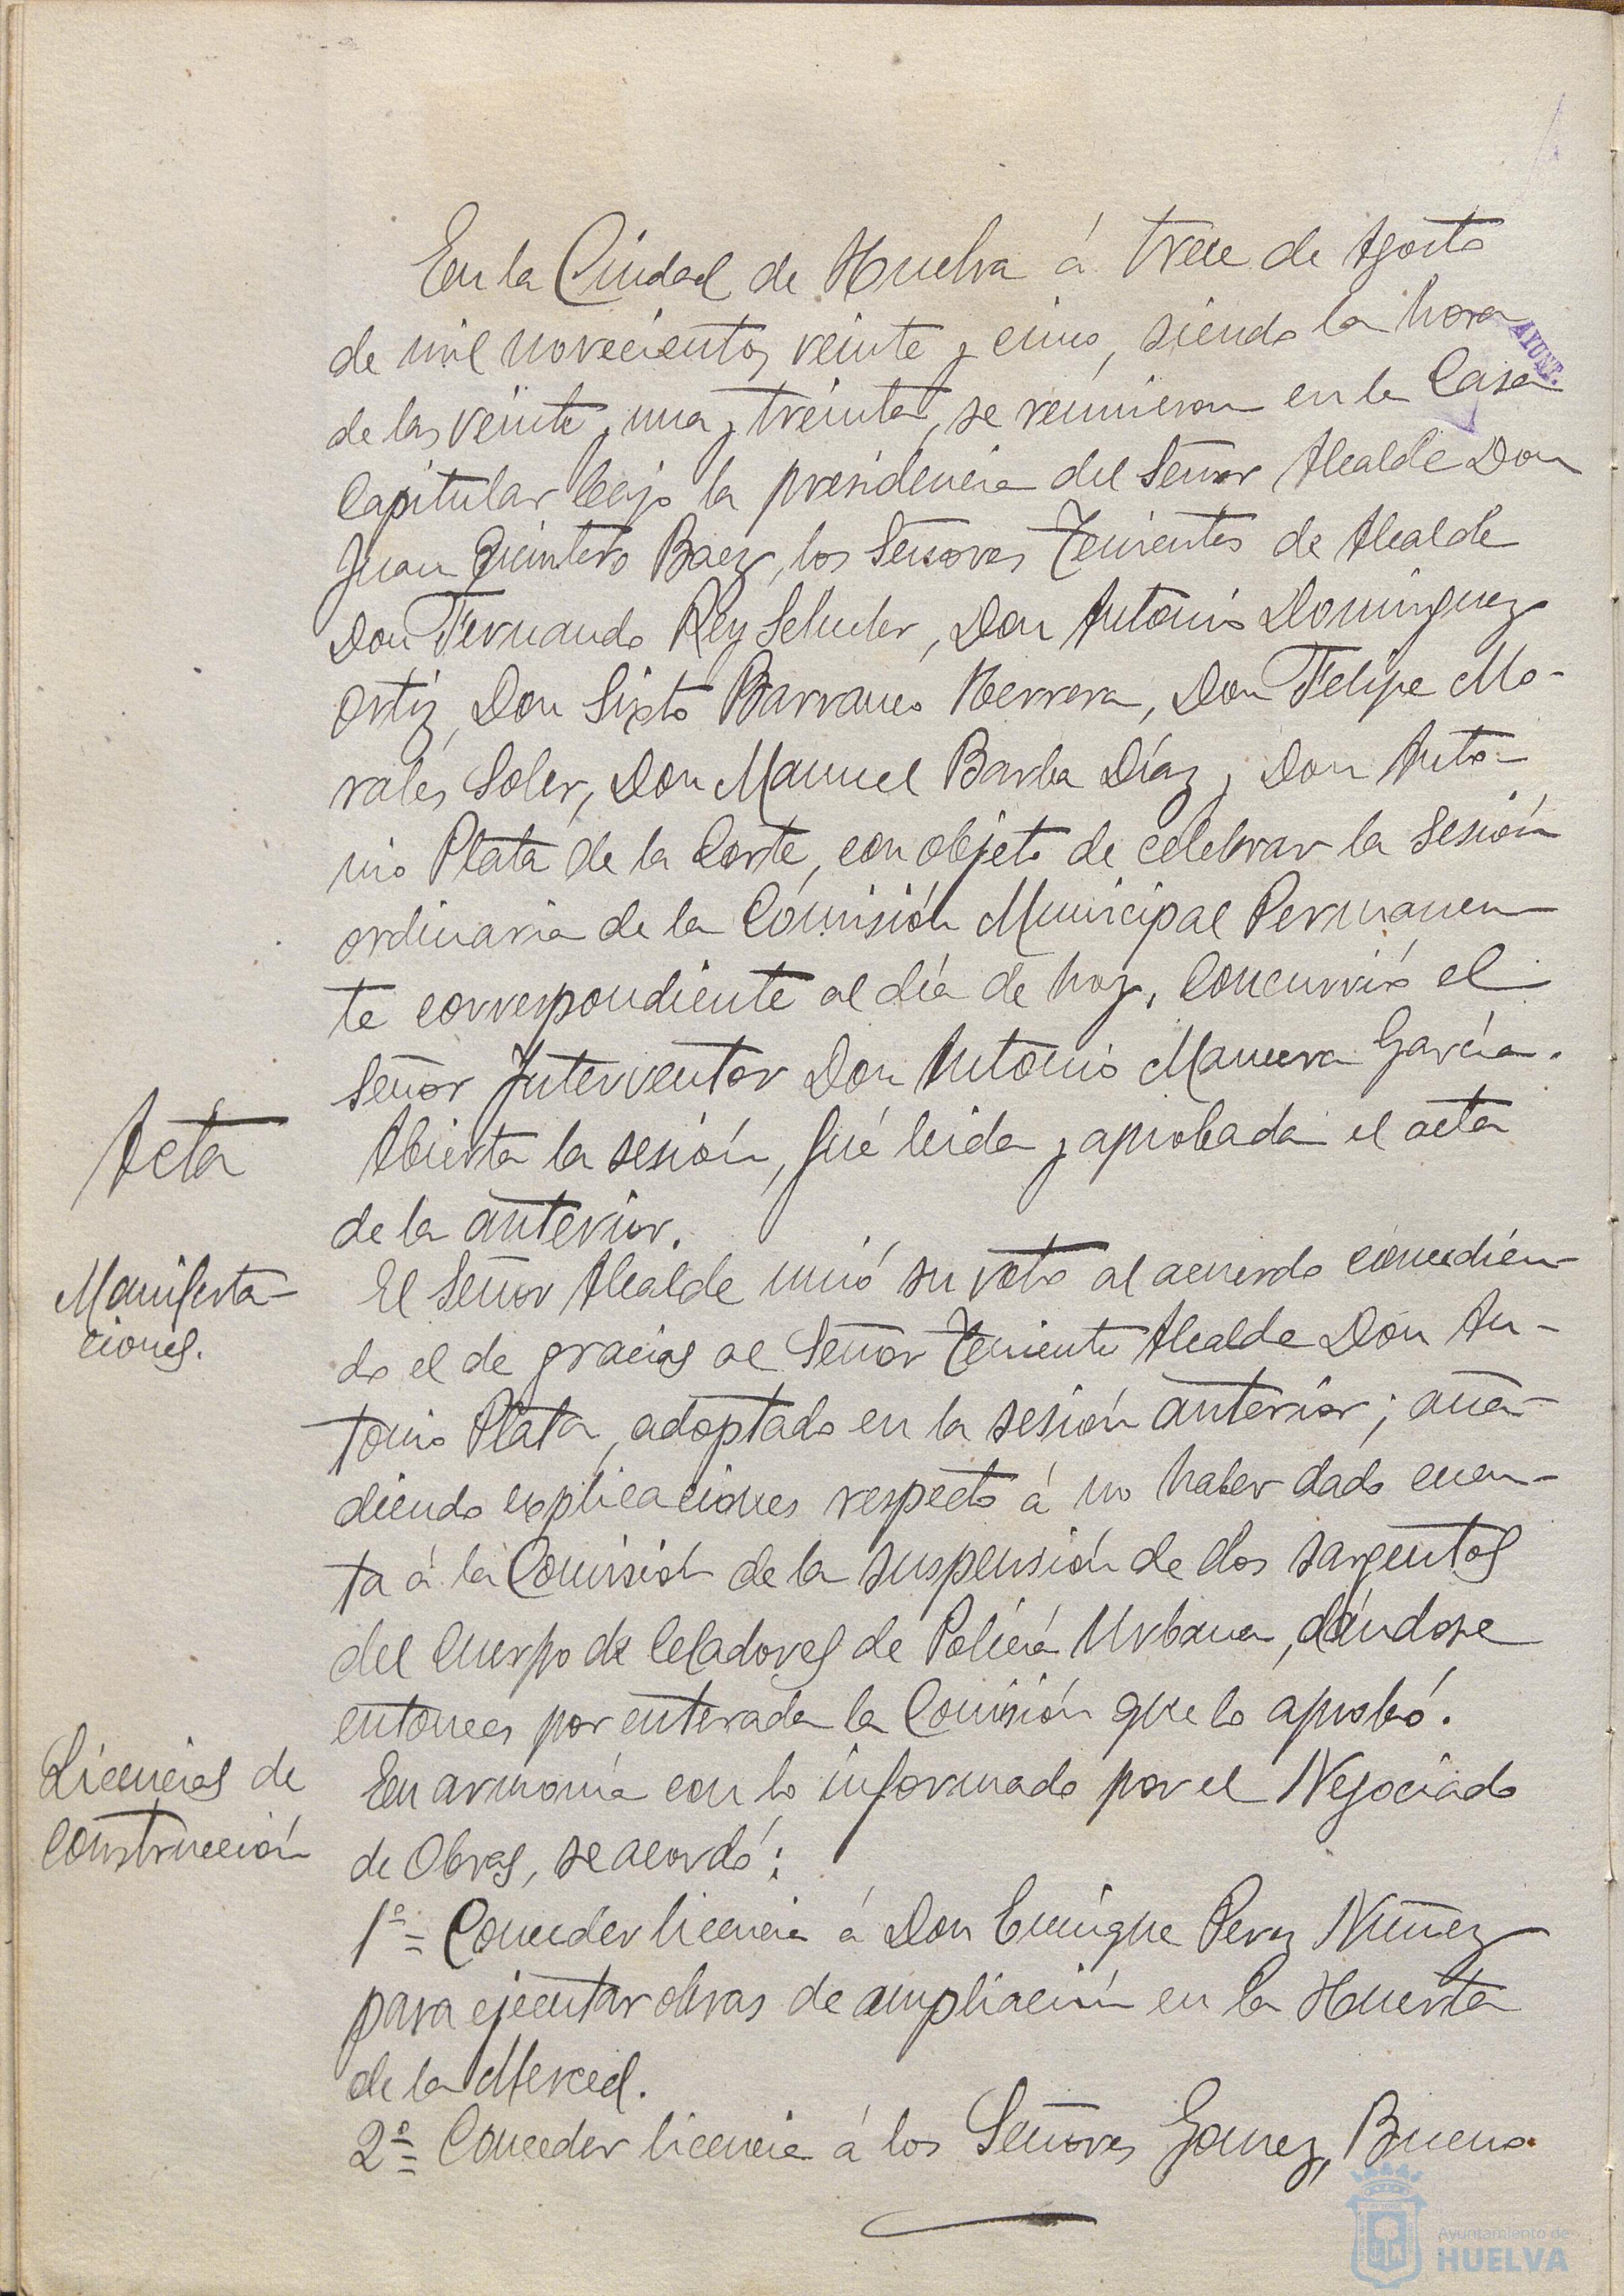 En la Ciudad de Huelva á trece de Agosto
de mil novecientos veinte y cinco, siendo la hora
AYUNT.
de las veinte y una y treinta, se reunieron en la Casa
Capitular bajo la presidencia del Señor Alcalde Don
Juan Quintero Baez, los Señores Tenientes de Alcalde
Don Fernando Rey Schuler, Don Antonio Dominguez
Ortiz, Don Sixto Barranco Herrera, Don Felipe Mo-
rales Soler, Don Manuel Barba Díaz y Don Anto-
nio Plata de la Corte, con objeto de celebrar la sesión
ordinaria de la Comisión Municipal Permanen-
te correspondiente al día de hoy. Concurrió el
Señor Interventor Don Antonio García.
Acta
Abierta la sesión, fué leida y aprobada el acta
de la anterior.
Manifesta-
ciones.
El Señor Alcalde unió su voto al acuerdo concedien-
do el de gracias al Señor Teniente Alcalde Don An-
tonio Plata, adoptado en la sesión anterior; aña-
diendo explicaciones respecto á no haber dado cuen-
ta á la Comisión de la suspensión de dos sargentos
del Cuerpo de Celadores de Policía Urbana, dándose
entonces por enterada la Comisión que lo aprobó.
Licencias de
construcción
En armonía con lo informado por el Negociado
de Obras, se acordó:
1º= Conceder licencia á Don Enrique Perez Nuñez
para ejecutar obras de ampliación en la Huerta
de la Merced.
2º= Conceder licencia á los Señores Gomez, Bueno
Ayuntamiento de
HUELVA